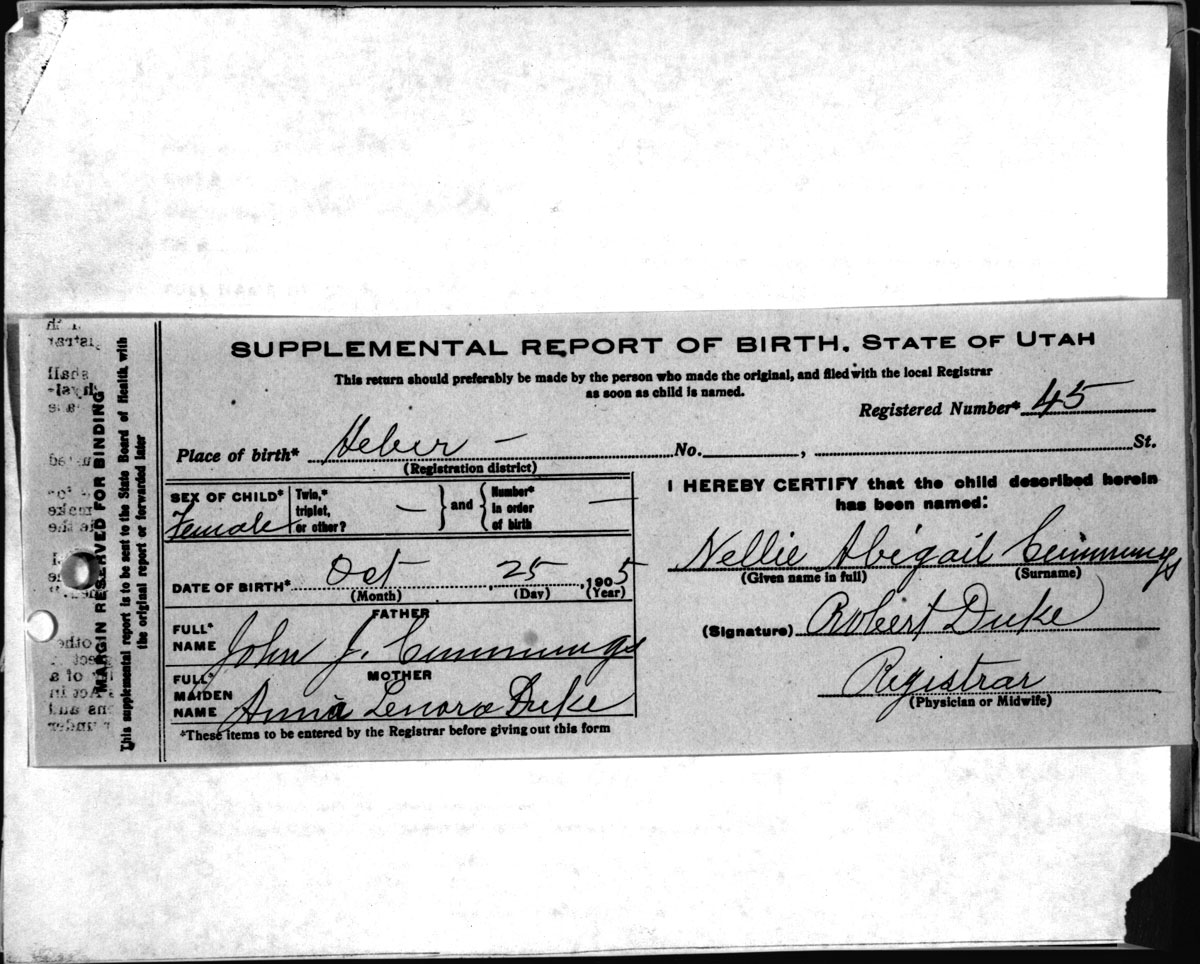 SUPPLEMENTAL REPORT OF BIRTH. STATE OF UTAH
This return should preferably be made by the person who made the original, and filed with the local Registrar
as soon as child is named.
Registered Number* 45
Place of birth* Heber - No. , St.
(Registration district)
SEX OF CHILD* Female
Twin,* triplet, or other? —
and
Number* in order of birth —
DATE OF BIRTH* Oct , 25 , 1905
(Month) (Day) (Year)
FATHER
FULL* NAME John J. Cummings
MOTHER
FULL* MAIDEN NAME Anna Lenora Duke
*These items to be entered by the Registrar before giving out this form
I HEREBY CERTIFY that the child described herein
has been named:
Nellie Abigail Cummings
(Given name in full) (Surname)
(Signature) Robert Duke
Registrar
(Physician or Midwife)
MARGIN RESERVED FOR BINDING
This supplemental report is to be sent to the State Board of Health, with
the original report or forwarded later